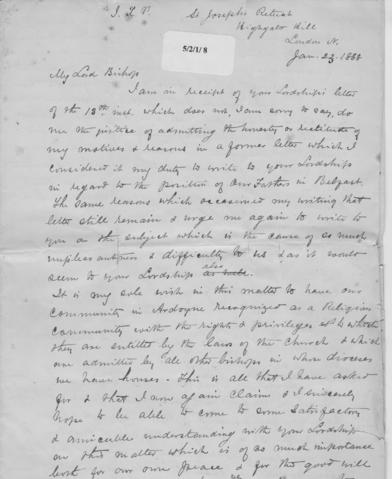 J. X. P.
St Joseph's Retreat
Highgate Hill
London N.
5/2/1/8
Jan. 23. 1888
My Lord Bishop
I am in receipt of your Lordship's letter
of the 13th inst. which does not, I am sorry to say, do
me the justice of admitting the honesty or rectitude of
my motives & reasons in a former letter which I
considered it my duty to write to your Lordship
in regard to the position of Our Fathers in Belfast.
The same reasons which occasioned my writing that
letter still remain & urge me again to write to
you on the subject which is the cause of so much
unpleasantness & difficulty to us & as it would
seem to your Lordship also
It is my sole wish in this matter to have our
community in Ardoyne recognized as a Religious
Community with the rights & privileges to which
they are entitled by the laws of the Church & which
are admitted by all other bishops in whose dioceses
we have houses. This is all that I have asked
for & that I now again claim & I sincerely
hope to be able to come to some satisfactory
& amicable understanding with your Lordship
on this matter which is of so much importance
both for our own peace & for the good will